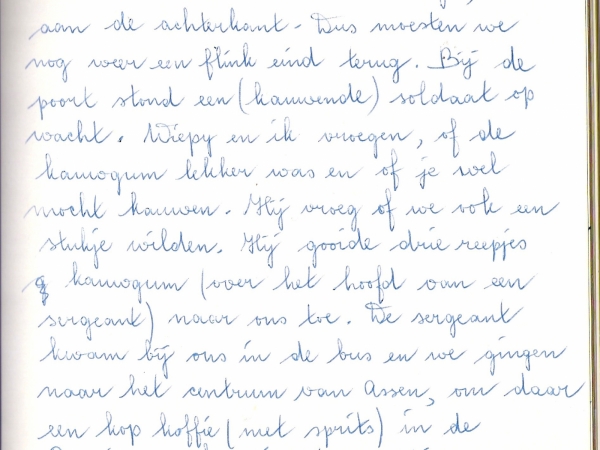 aan de achterkant. Dus moesten we
nog weer een flink eind terug. Bij de
poort stond een (kauwende) soldaat op
wacht. Wiepy en ik vroegen, of de
kauwgum lekker was en of je wel
mocht kauwen. Hij vroeg of we ook een
stukje wilden. Hij gooide drie reepjes
kauwgum (over het hoofd van een
sergeant) naar ons toe. De sergeant
kwam bij ons in de bus en we gingen
naar het centrum van Assen, om daar
een kop koffie (met sprits) in de